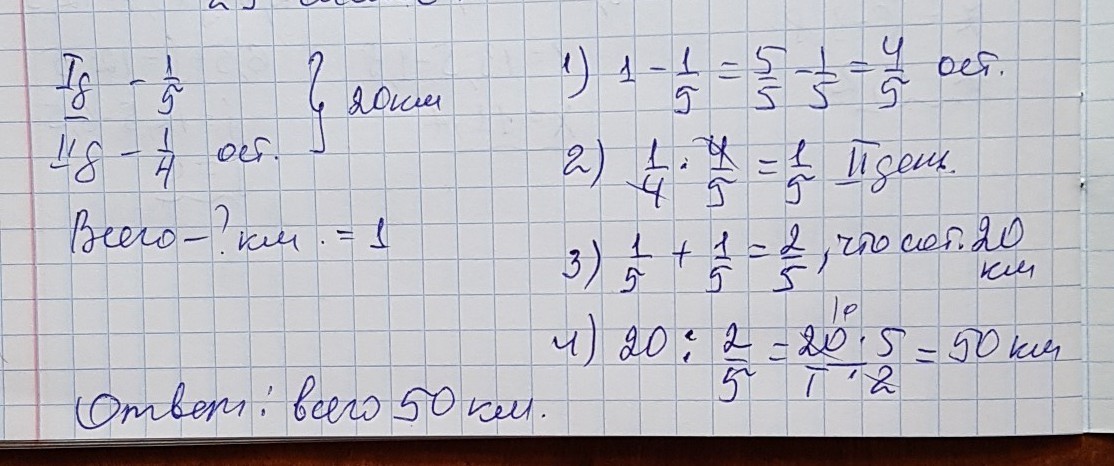 Iд - 1/5 } 20 км
IIд - 1/4 ост.
Всего - ? км. = 1
1) 1 - 1/5 = 5/5 - 1/5 = 4/5 ост.
2) 1/4 · 4/5 = 1/5 II день.
3) 1/5 + 1/5 = 2/5, что сост. 20
км
4) 20 : 2/5 = 20 · 5 / 1 · 2 = 50 км
10
Ответ: всего 50 км.